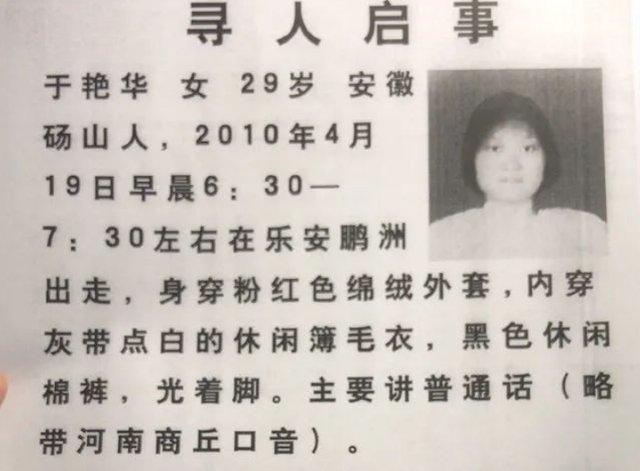 寻人启事
于艳华 女 29岁 安徽
砀山人，2010年4月
19日早晨6：30—
7：30左右在乐安鹏洲
出走，身穿粉红色绵绒外套，内穿
灰带点白的休闲簿毛衣，黑色休闲
棉裤，光着脚。主要讲普通话（略
带河南商丘口音）。